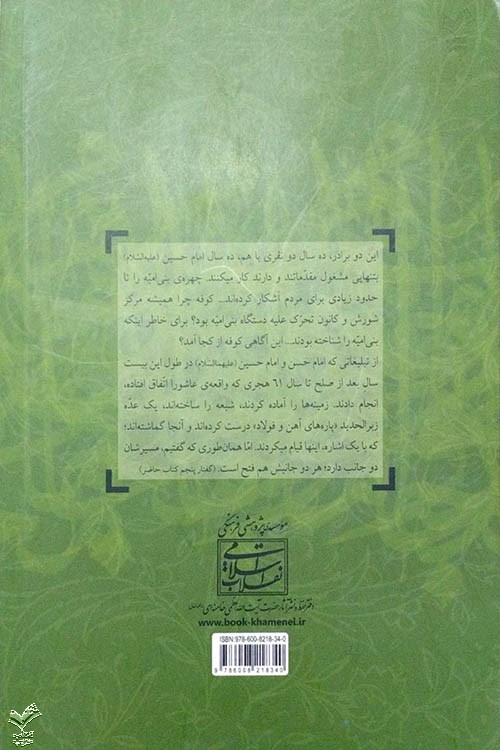 این دو برادر، ده سال دو نفری با هم، ده سال امام حسین (علیه‌السّلام)
بتنهایی مشغول مقدّماتند و دارند کار میکنند. چهره‌ی بنی‌امیّه را تا
حدود زیادی برای مردم آشکار کرده‌اند... کوفه چرا همیشه مرکز
شورش و کانون تحرّک علیه دستگاه بنی‌امیّه بود؟ برای خاطر اینکه
بنی‌امیّه را شناخته بودند... این آگاهی کوفه از کجا آمد؟
از تبلیغاتی که امام حسن و امام حسین (علیهماالسّلام) در طول این بیست
سال بعد از صلح تا سال ۶۱ هجری که واقعه‌ی عاشورا اتّفاق افتاده،
انجام دادند. زمینه‌ها را آماده کردند، شیعه را ساخته‌اند، یک عدّه
زبرالحدید «پاره‌های آهن و فولاد» درست کرده‌اند و آنجا گماشته‌اند؛
که با یک اشاره، اینها قیام میکردند. امّا همان‌طوری که گفتیم، مسیرشان
دو جانب دارد؛ هر دو جانبش هم فتح است. (گفتار پنجم کتاب حاضر)
مؤسسه‌ی پژوهشی فرهنگی
انقلاب اسلامی
دفتر حفظ و نشر آثار حضرت آیت‌الله العظمی خامنه‌ای
www.book-khamenei.ir
ISBN: 978-600-8218-34-0
9 786008 218340